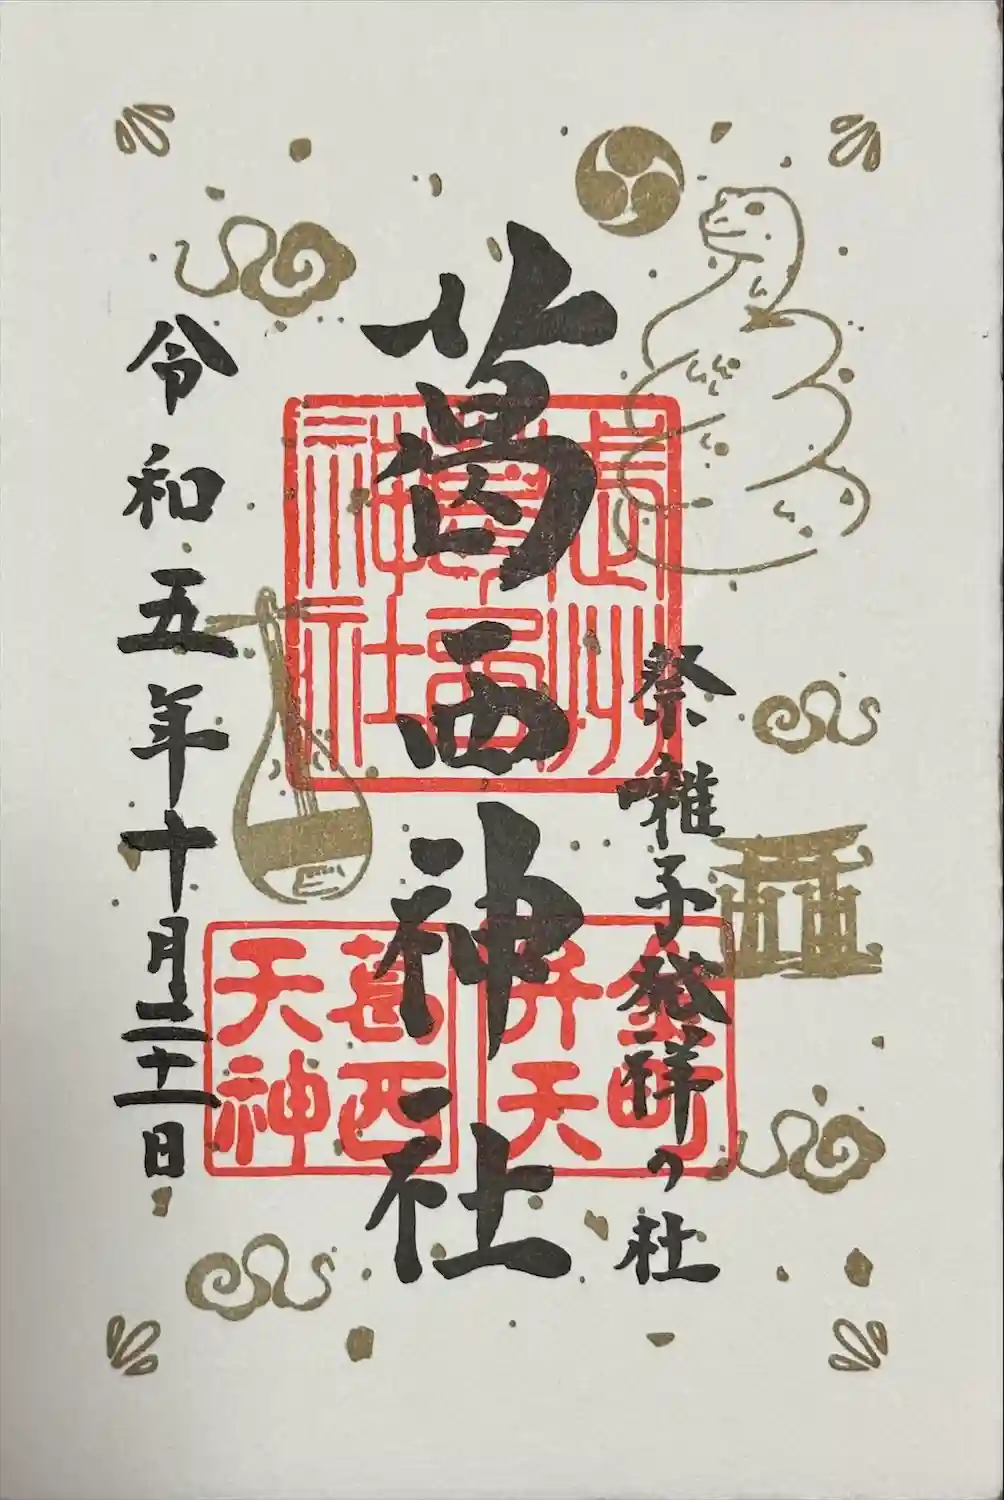 祭囃子発祥の杜
葛西神社
令和五年十月二十一日
武州
葛西
神社
金町
弁天
葛西
天神